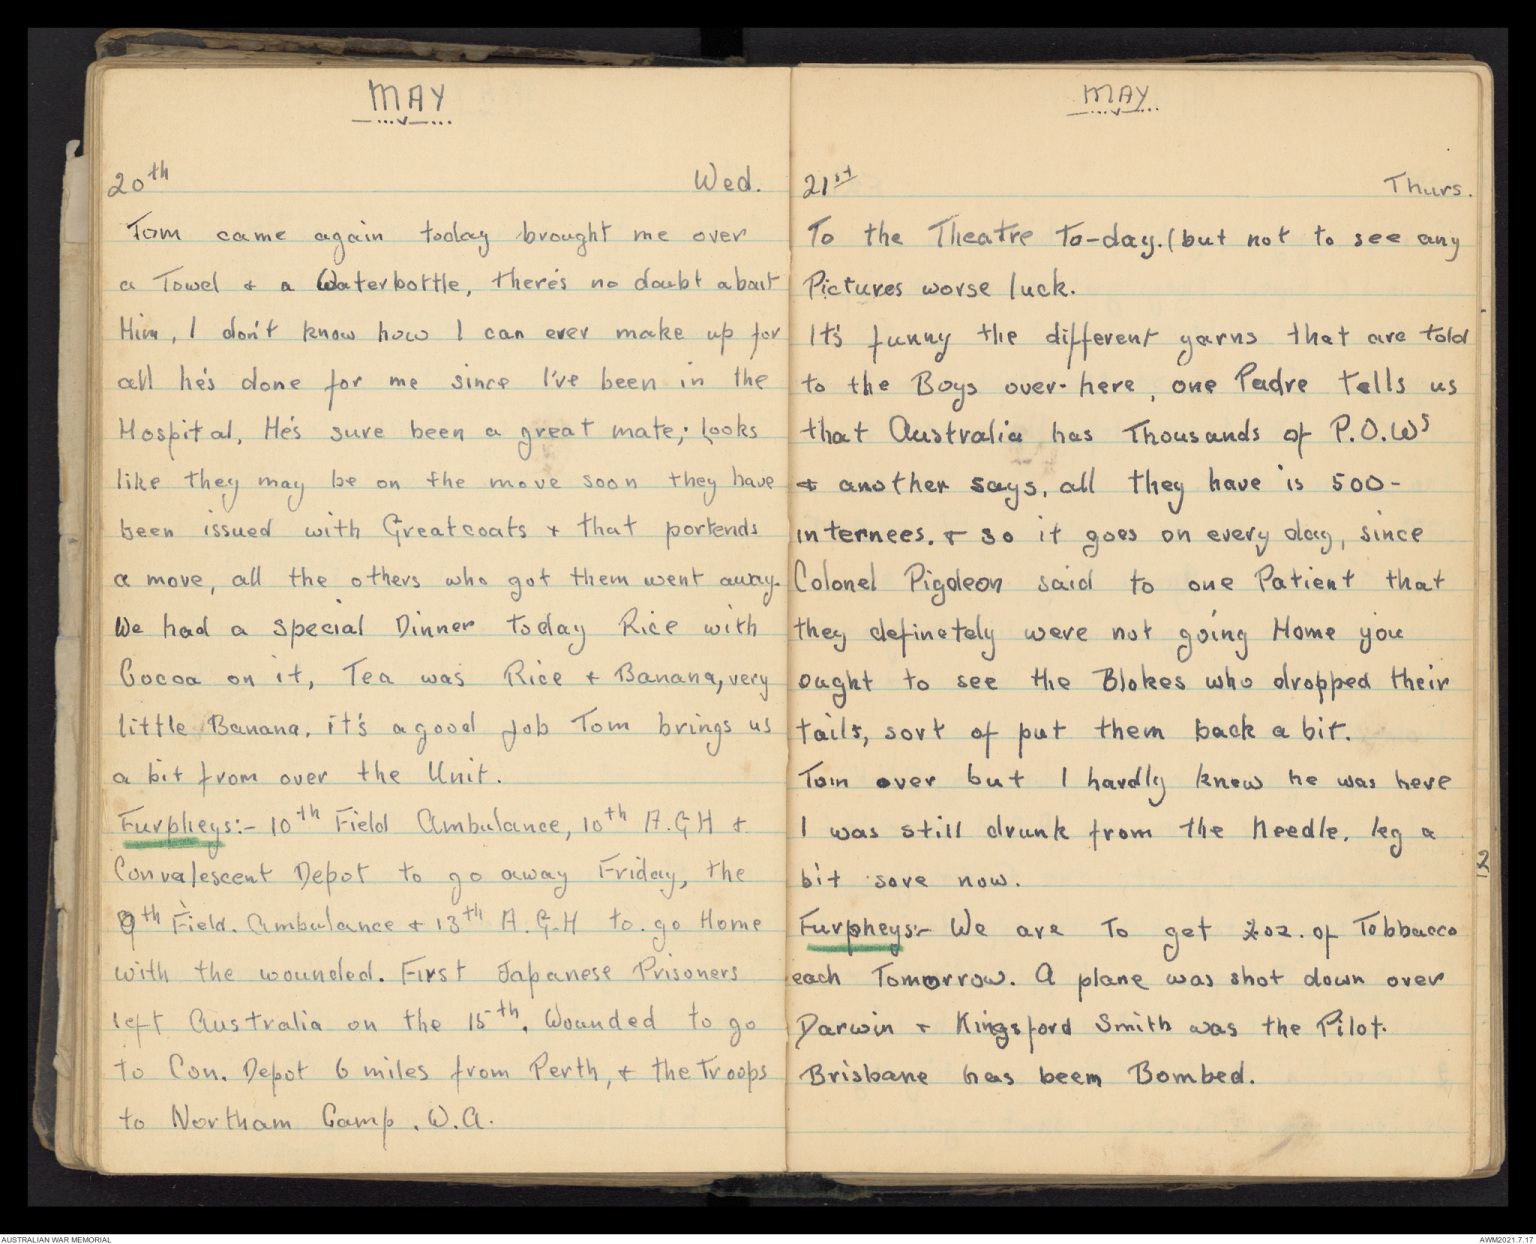 MAY
20th Wed.
Tom came again today brought me over
a Towel & a Waterbottle, there's no doubt about
Him, I don't know how I can ever make up for
all he's done for me since I've been in the
Hospital, He's sure been a great mate; Looks
like they may be on the move soon they have
been issued with Greatcoats & that portends
a move, all the others who got them went away.
We had a special Dinner today Rice with
Cocoa on it, Tea was Rice & Banana, very
little Banana, it's a good job Tom brings us
a bit from over the Unit.
Furpheys:- 10th Field Ambulance, 10th A.G.H &
Convalescent Depot to go away Friday, the
9th Field. Ambulance & 13th A.G.H to go Home
with the wounded. First Japanese Prisoners
left Australia on the 15th. Wounded to go
to Con. Depot 6 miles from Perth, & the Troops
to Northam Camp. W.A.
MAY
21st Thurs.
To the Theatre To-day. (but not to see any
Pictures worse luck.
It's funny the different yarns that are told
to the Boys over-here, one Padre tells us
that Australia has Thousands of P.O.Ws
& another says, all they have is 500-
internees. & so it goes on every day, since
Colonel Pigdeon said to one Patient that
they definetely were not going Home you
ought to see the Blokes who dropped their
tails, sort of put them back a bit.
Tom over but I hardly knew he was here
I was still drunk from the Needle. leg a
bit sore now.
Furpheys:- We are To get 2oz. of Tobbacco
each Tomorrow. A plane was shot down over
Darwin & Kingsford Smith was the Pilot.
Brisbane has beem Bombed.
2
AUSTRALIAN WAR MEMORIAL
AWM2021.7.17